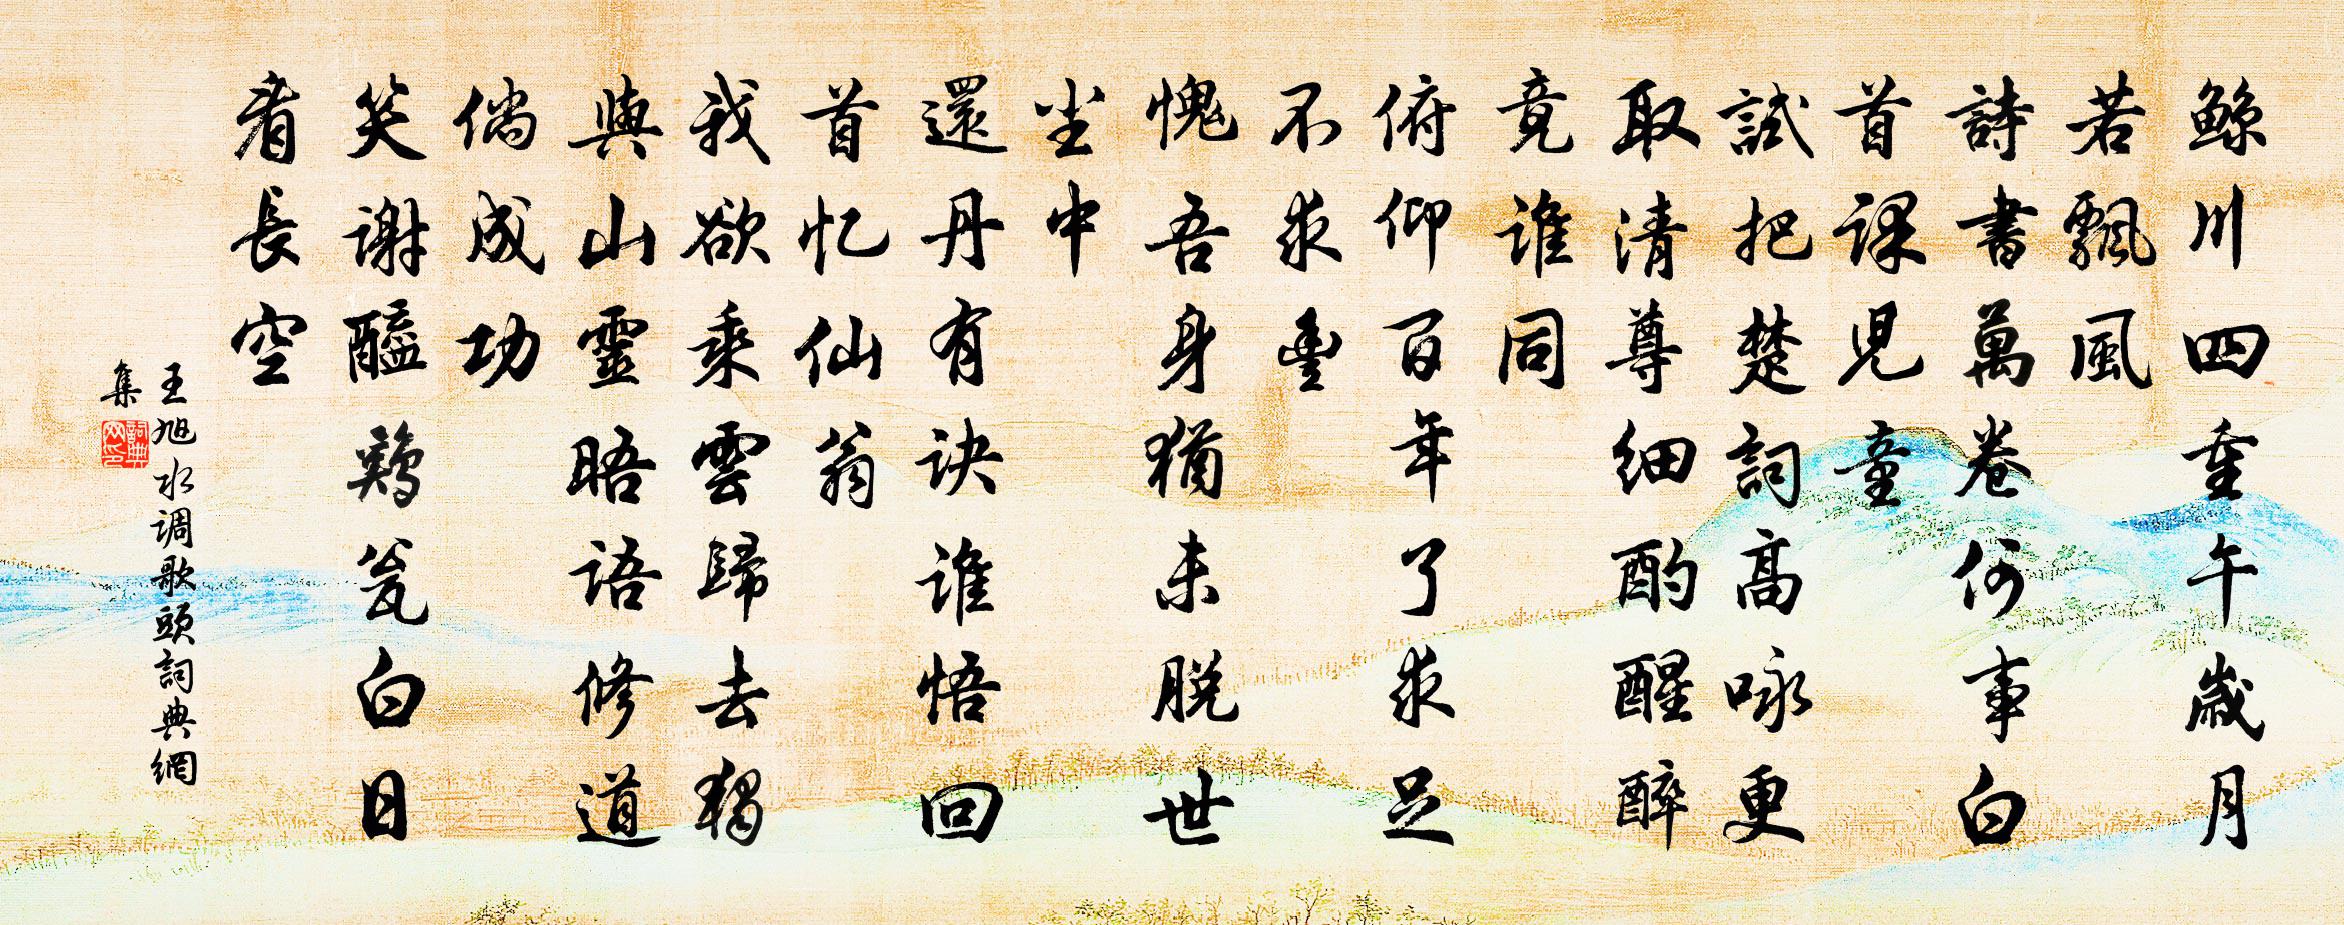 鯨川四重午歲月
若飄風
詩書萬卷何事白
首課兒童
試把楚詞高咏更
取清尊細酌醒醉
竟誰同
俯仰百年了求足
不求豐
愧吾身猶未脫世
坐中
還丹有訣誰悟回
首忆仙翁
我欲乘雲歸去獨
與山靈晤語修道
倘成功
笑謝醯鷄瓮白日
看長空
王旭水调歌頭詞典網
集